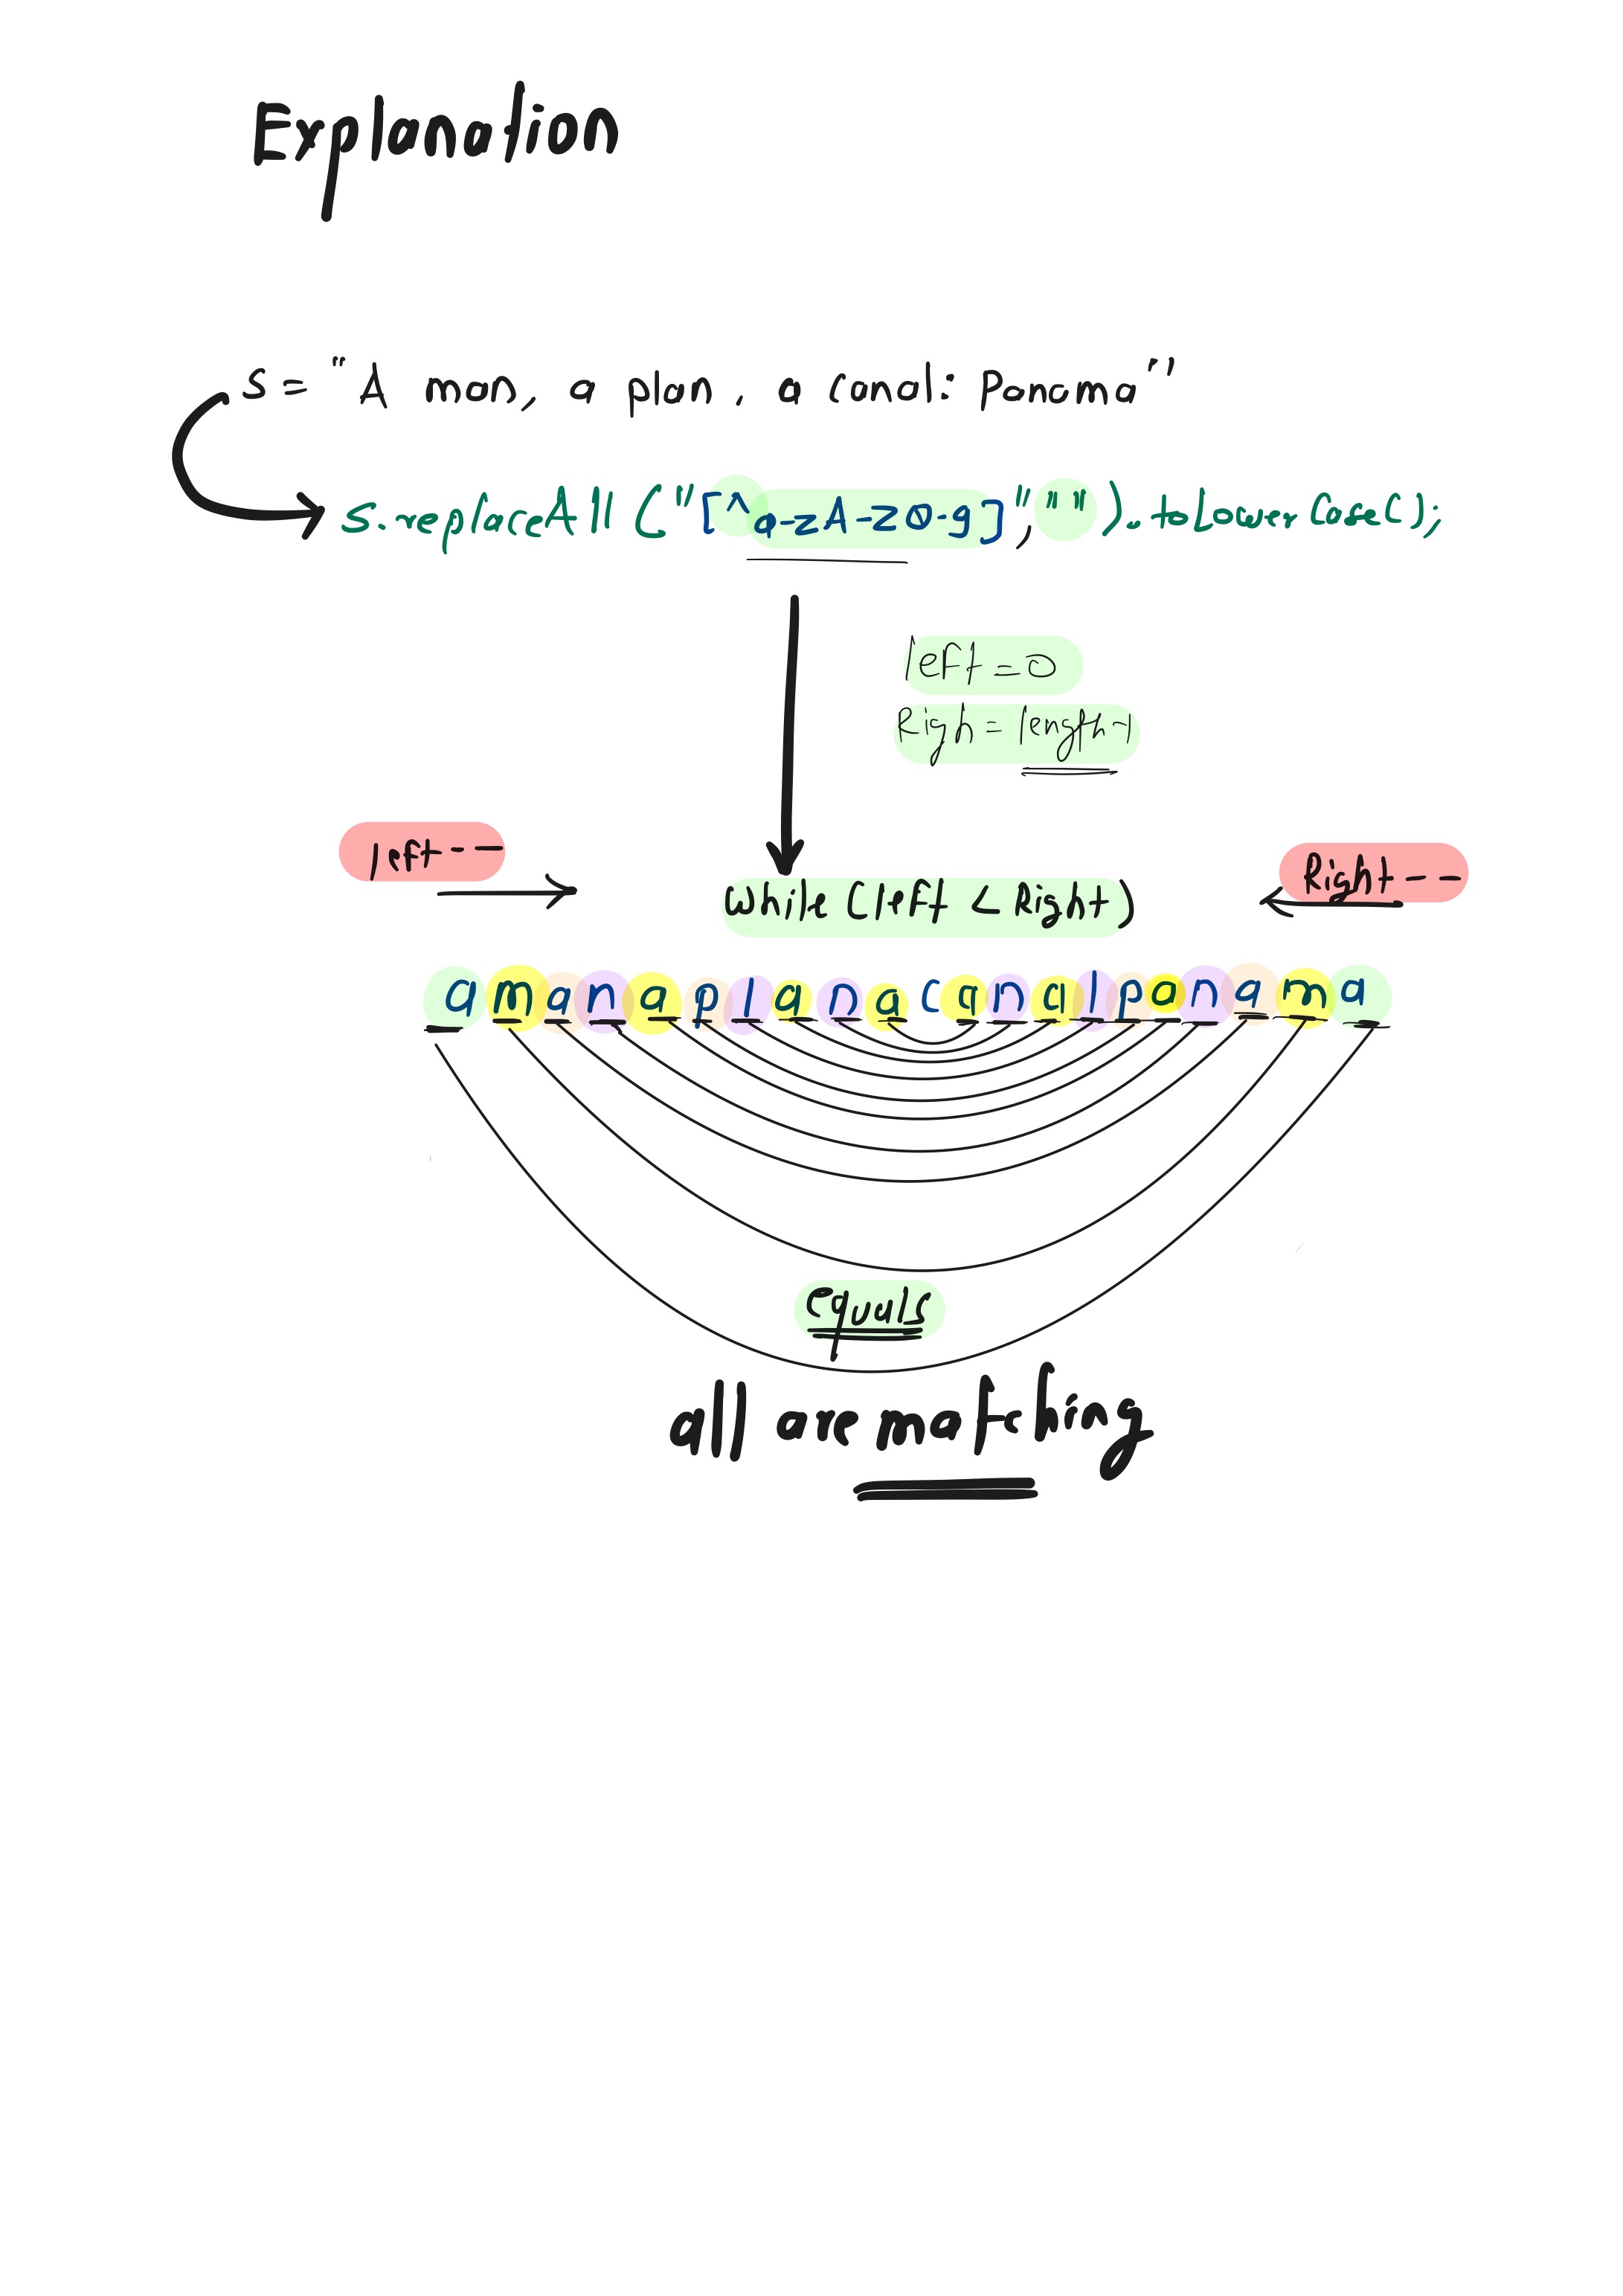 Explanation
s = "A man, a plan, a canal: Panama"
s.replaceAll("[^a-zA-Z0-9]", "").toLowerCase();
left = 0
Righ = length-1
left--
Right--
while (left < Right)
amanaplanacanalpanama
equals
all are matching